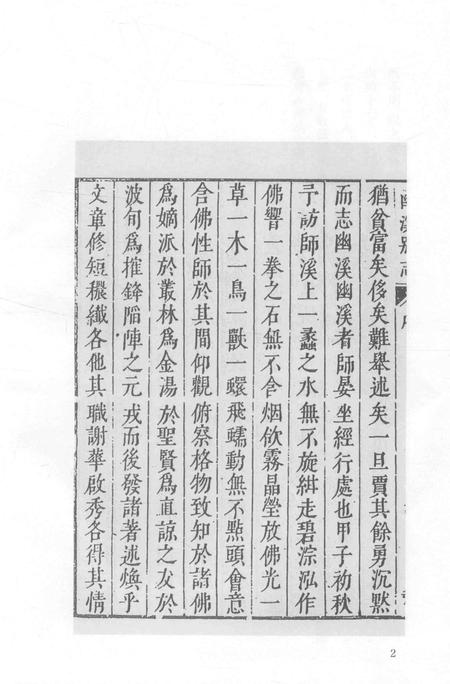 幽溪別志
序
猶貧富矣侈矣難舉述矣一旦賈其餘勇沉默
而志幽溪幽溪者師晏坐經行處也甲子初秋
予訪師溪上一蠡之水無不旋紺走碧淙泓作
佛響一拳之石無不含烟飲霧晶瑩放佛光一
草一木一鳥一獸一蠉飛蠕動無不點頭會意
合佛性師於其間仰觀俯察格物致知於諸佛
為嫡派於叢林為金湯於聖賢為直諒之友於
波旬為摧鋒陷陣之元戎而後發諸著述煥乎
文章修短穠纖各他其職謝華啟秀各得其情
2